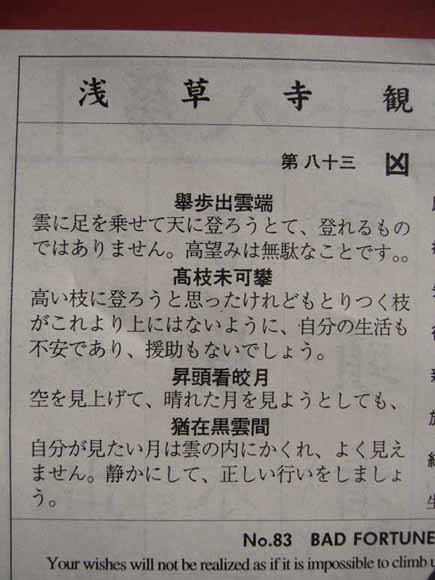 浅草寺観
第八十三 凶
舉歩出雲端
雲に足を乗せて天に登ろうとて、登れるもの
ではありません。高望みは無駄なことです。。
髙枝未可攀
高い枝に登ろうと思ったけれどもとりつく枝
がこれより上にはないように、自分の生活も
不安であり、援助もないでしょう。
昇頭看皎月
空を見上げて、晴れた月を見ようとしても、
猶在黒雲間
自分が見たい月は雲の内にかくれ、よく見え
ません。静かにして、正しい行いをしましょ
う。
No.83 BAD FORTUNE
Your wishes will not be realized as if it is impossible to climb u